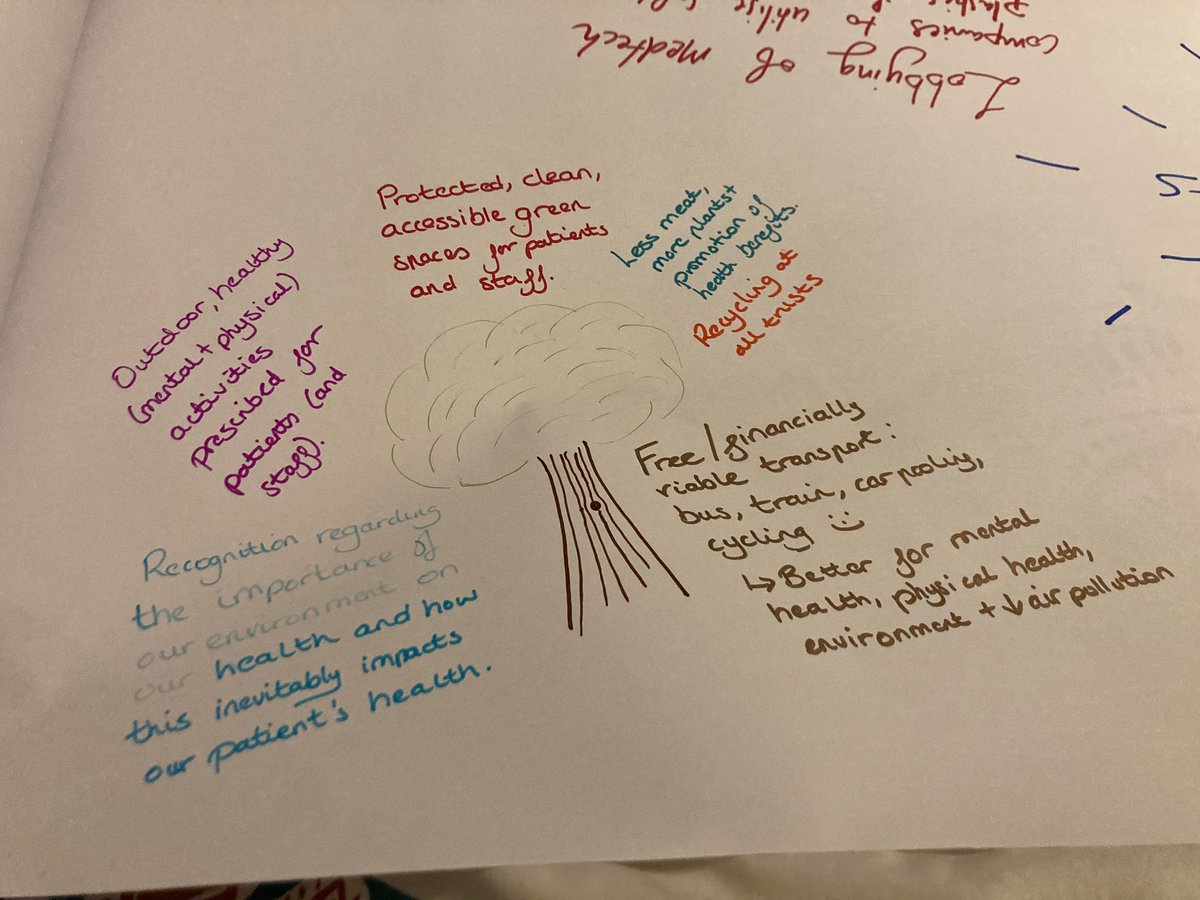 Lobbying of medtech
companies to utilise
Protected, clean,
accessible green
spaces for patients
and staff.
Less meat,
more plants +
promotion of
health benefits.
Recycling at
all trusts
Outdoor, healthy
(mental + physical)
activities
prescribed for
patients (and
staff).
Free/financially
viable transport:
bus, train, car pooling,
cycling :)
↳ Better for mental
health, physical health,
environment + ↓ air pollution
Recognition regarding
the importance of
our environment on
our health and how
this inevitably impacts
our patient's health.